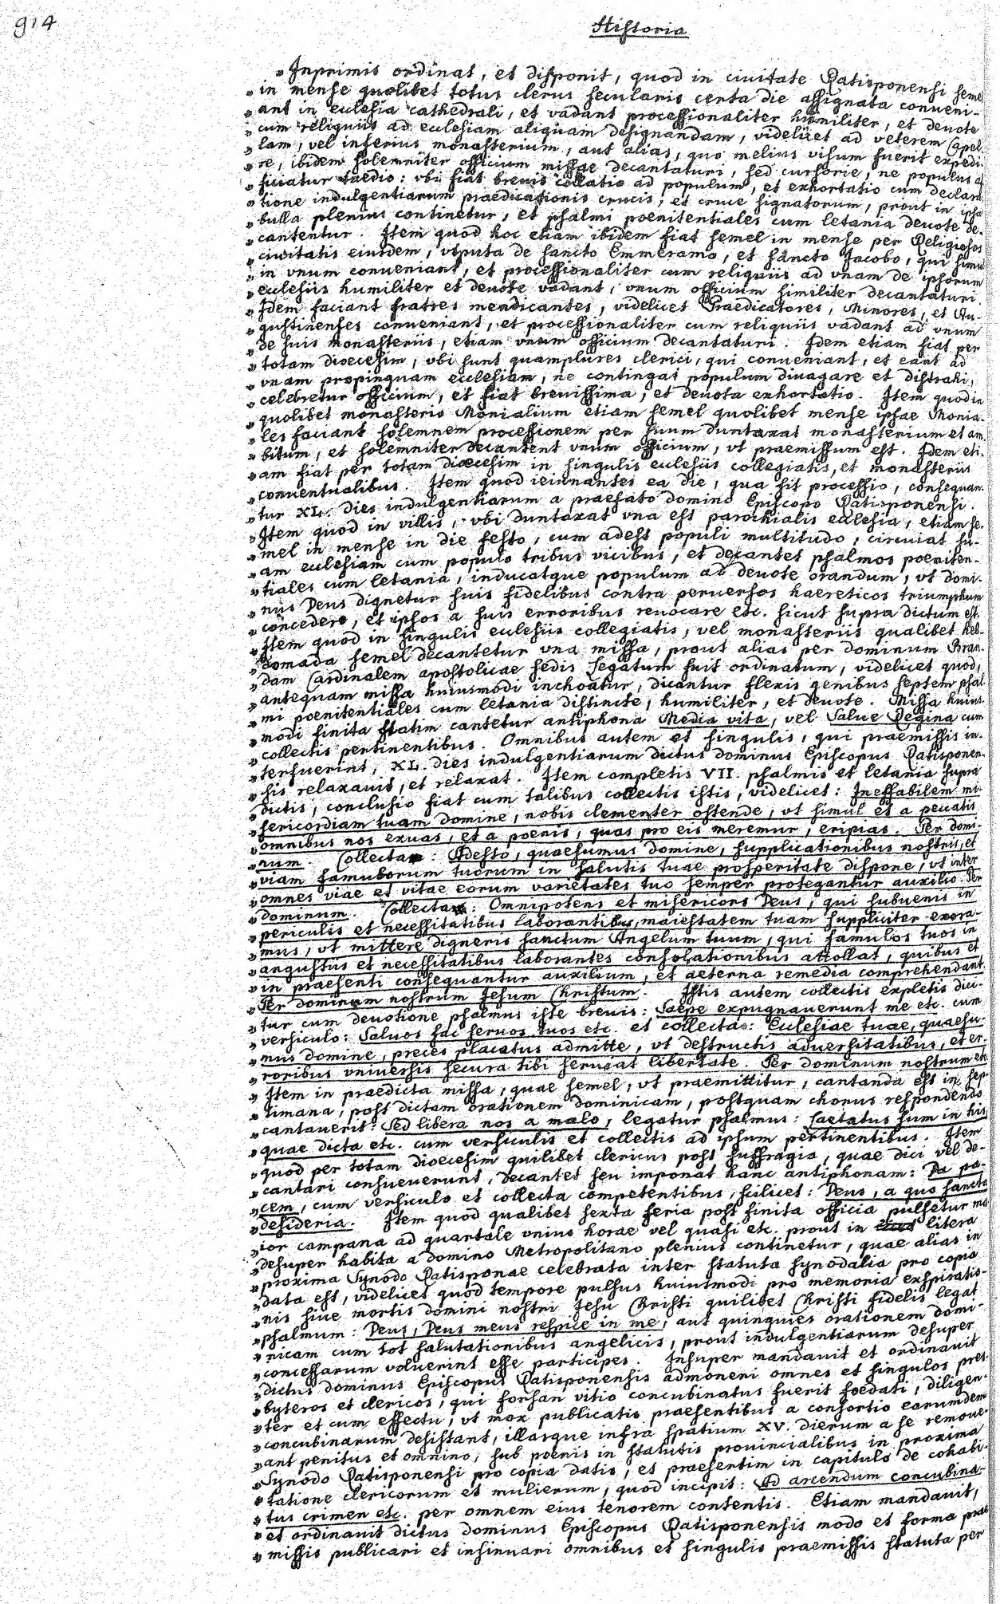 914
Historia
„Inprimis ordinat, et disponit, quod in civitate Ratisponensi seme
„in mense quolibet totus clerus secularis certa die assignata conveni-
„ant in eclesia cathedrali, et vadant processionaliter humiliter, et devote
„cum reliquiis ad ecclesiam aliquam designandam, videlicet ad veterem Capel-
„lam, vel inferius monasterium, aut alias, quo melius visum fuerit expedi-
„re, ibidem solemniter officium missae decantaturi, sed cursorie, ne populus a
„ficiatur taedio: vbi fiat brevis collatio ad populum, et exhortatio cum declara
„tione indulgentiarum praedicationis crucis, et cruce signatorum, prout in ipsa
„bulla plenius continetur, et psalmi poenitentiales cum letania devote de-
„cantentur. Item quod hoc etiam ibidem fiat semel in mense per Religiosos
„civitatis eiusdem, vtputa de sancto Emmeramo, et sancto Jacobo, qui simul
„in vnum conveniant, et processionaliter cum reliquiis ad vnam de ipsorum
„ecclesiis humiliter et devote vadant, vnum officium similiter decantaturi.
„Idem faciant fratres mendicantes, videlicet Praedicatores, Minores, et Au-
„gustinenses conveniant, et processionaliter cum reliquiis vadant ad vnum
„de suis monasteriis, etiam vnum officium decantaturi. Idem etiam fiat per
„totam dioecesim, vbi sunt quamplures clerici, qui conveniant, et eant ad
„vnam propinquam ecclesiam, ne contingat populum divagare et distrahi,
„celebretur officium, et fiat brevissima, et devota exhortatio. Item quod in
„quolibet monasterio Monialium etiam semel quolibet mense ipsae Monia-
„les faciant solemnem processionem per suum duntaxat monasterium et am-
„bitum, et solemniter decantent vnum officium, vt praemissum est. Idem eti-
„am fiat per totam dioecesim in singulis eclesiis collegiatis, et monasteriis
„conventualibus. Item quod ieiunantes ea die, qua fit processio, consequan-
„tur XL. dies indulgentiarum a praefato domino Episcopo Ratisponensi.
„Item quod in villis, vbi duntaxat vna est parochialis eclesia, etiam se-
„mel in mense in die festo, cum adest populi multitudo, circuiat su-
„am ecclesiam cum populo tribus vicibus, et decantet psalmos poeniten-
„tiales cum letania, inducatque populum ad devote orandum, vt domi-
„nus Deus dignetur suis fidelibus contra perversos haereticos triumphum
„concedere, et ipsos a suis erroribus revocare etc. sicut supra dictum est.
„Item quod in singulis eclesiis collegiatis, vel monasteriis qualibet heb-
„domada semel decantetur vna missa, prout alias per dominum Bran-
„dam Cardinalem apostolicae sedis Legatum fuit ordinatum, videlicet quod,
„antequam missa huiusmodi inchoatur, dicantur flexis genibus septem psal
„mi poenitentiales cum letania distincte, humiliter, et devote. Missa huius-
„modi finita statim cantetur antiphona Media vita, vel Salve Regina cum
„collectis pertinentibus. Omnibus autem et singulis, qui praemissis in-
„terfuerint, XL. dies indulgentiarum dictus dominus Episcopus Ratisponen-
„sis relaxavit, et relaxat. Item completis VII. psalmis et letania supra
„dictis, conclusio fiat cum talibus collectis istis, videlicet: Ineffabilem mi-
„sericordiam tuam domine, nobis clementer ostende, vt simul et a peccatis
„omnibus nos exuas, et a poenis, quas pro eis meremur, eripias. Per domi-
„num. Collecta: Adesto, quaesumus domine, supplicationibus nostris, et
„viam famulorum tuorum in salutis tuae prosperitate dispone, vt inter
„omnes viae et vitae eorum varietates tuo semper protegantur auxilio. Per
„dominum. Collecta: Omnipotens et misericors Deus, qui subvenis in
„periculis et necessitatibus laborantibus, maiestatem tuam suppliciter exora-
„mus, vt mittere digneris sanctum Angelum tuum, qui famulos tuos in
„angustiis et necessitatibus laborantes consolationibus attollat, quibus et
„in praesenti consequantur auxilium, et aeterna remedia comprehendant.
„Per dominum nostrum Jesum Christum. Istis autem collectis expletis dica-
„tur cum devotione psalmus iste brevis: Saepe expugnaverunt me etc. cum
„versiculo: Salvos fac servos tuos etc. et collecta: Ecclesiae tuae, quaesu-
„mus domine, preces placatus admitte, vt destructis adversitatibus, et er-
„roribus vniversis secura tibi serviat libertate. Per dominum nostrum etc
„Item in praedicta missa, quae semel, vt praemittitur, cantanda est in sep-
„timana, post dictam orationem dominicam, postquam chorus respondendo
„cantaverit: Sed libera nos a malo, legatur psalmus: Laetatus sum in his
„quae dicta etc. cum versiculis et collectis ad ipsum pertinentibus. Item
„quod per totam dioecesim quilibet clericus post suffragia, quae dici vel de-
„cantari consueverunt, decantet seu imponat hanc antiphonam: Da pa-
„cem, cum versiculo et collecta competentibus, scilicet: Deus, a quo sancta
„desideria. Item quod qualibet sexta feria post finita officia pulsetur ma
„ior campana ad quartale vnius horae vel quasi etc. prout in litera
„desuper habita a domino Metropolitano plenius continetur, quae alias in
„proxima Synodo Ratisponae celebrata inter statuta synodalia pro copia
„data est, videlicet quod tempore pulsus huiusmodi pro memoria exspiratio-
„nis sive mortis domini nostri Jesu Christi quilibet Christi fidelis legat
„psalmum: Deus, Deus meus respice in me, aut quinquies orationem domi-
„nicam cum tot salutationibus angelicis, prout indulgentiarum desuper
„concessarum voluerint esse participes. Insuper mandavit et ordinavit
„dictus dominus Episcopus Ratisponensis admoneri omnes et singulos pres
„byteros et clericos, qui forsan vitio concubinatus fuerit foedati, diligen-
„ter et cum effectu, vt mox publicatis praesentibus a consortio earumdem
„concubinarum desistant, illasque infra spatium XV. dierum a se remove-
„ant penitus et omnino, sub poenis in statutis provincialibus in proxima
„Synodo Ratisponensi pro copia datis, et praesertim in capitulo de cohabi-
„tatione clericorum et mulierum, quod incipit: Ad arcendum concubina-
„tus crimen etc. per omnem eius tenorem contentis. Etiam mandavit,
„et ordinavit dictus dominus Episcopus Ratisponensis modo et forma prae
„missis publicari et insinuari omnibus et singulis praemissis statuta per